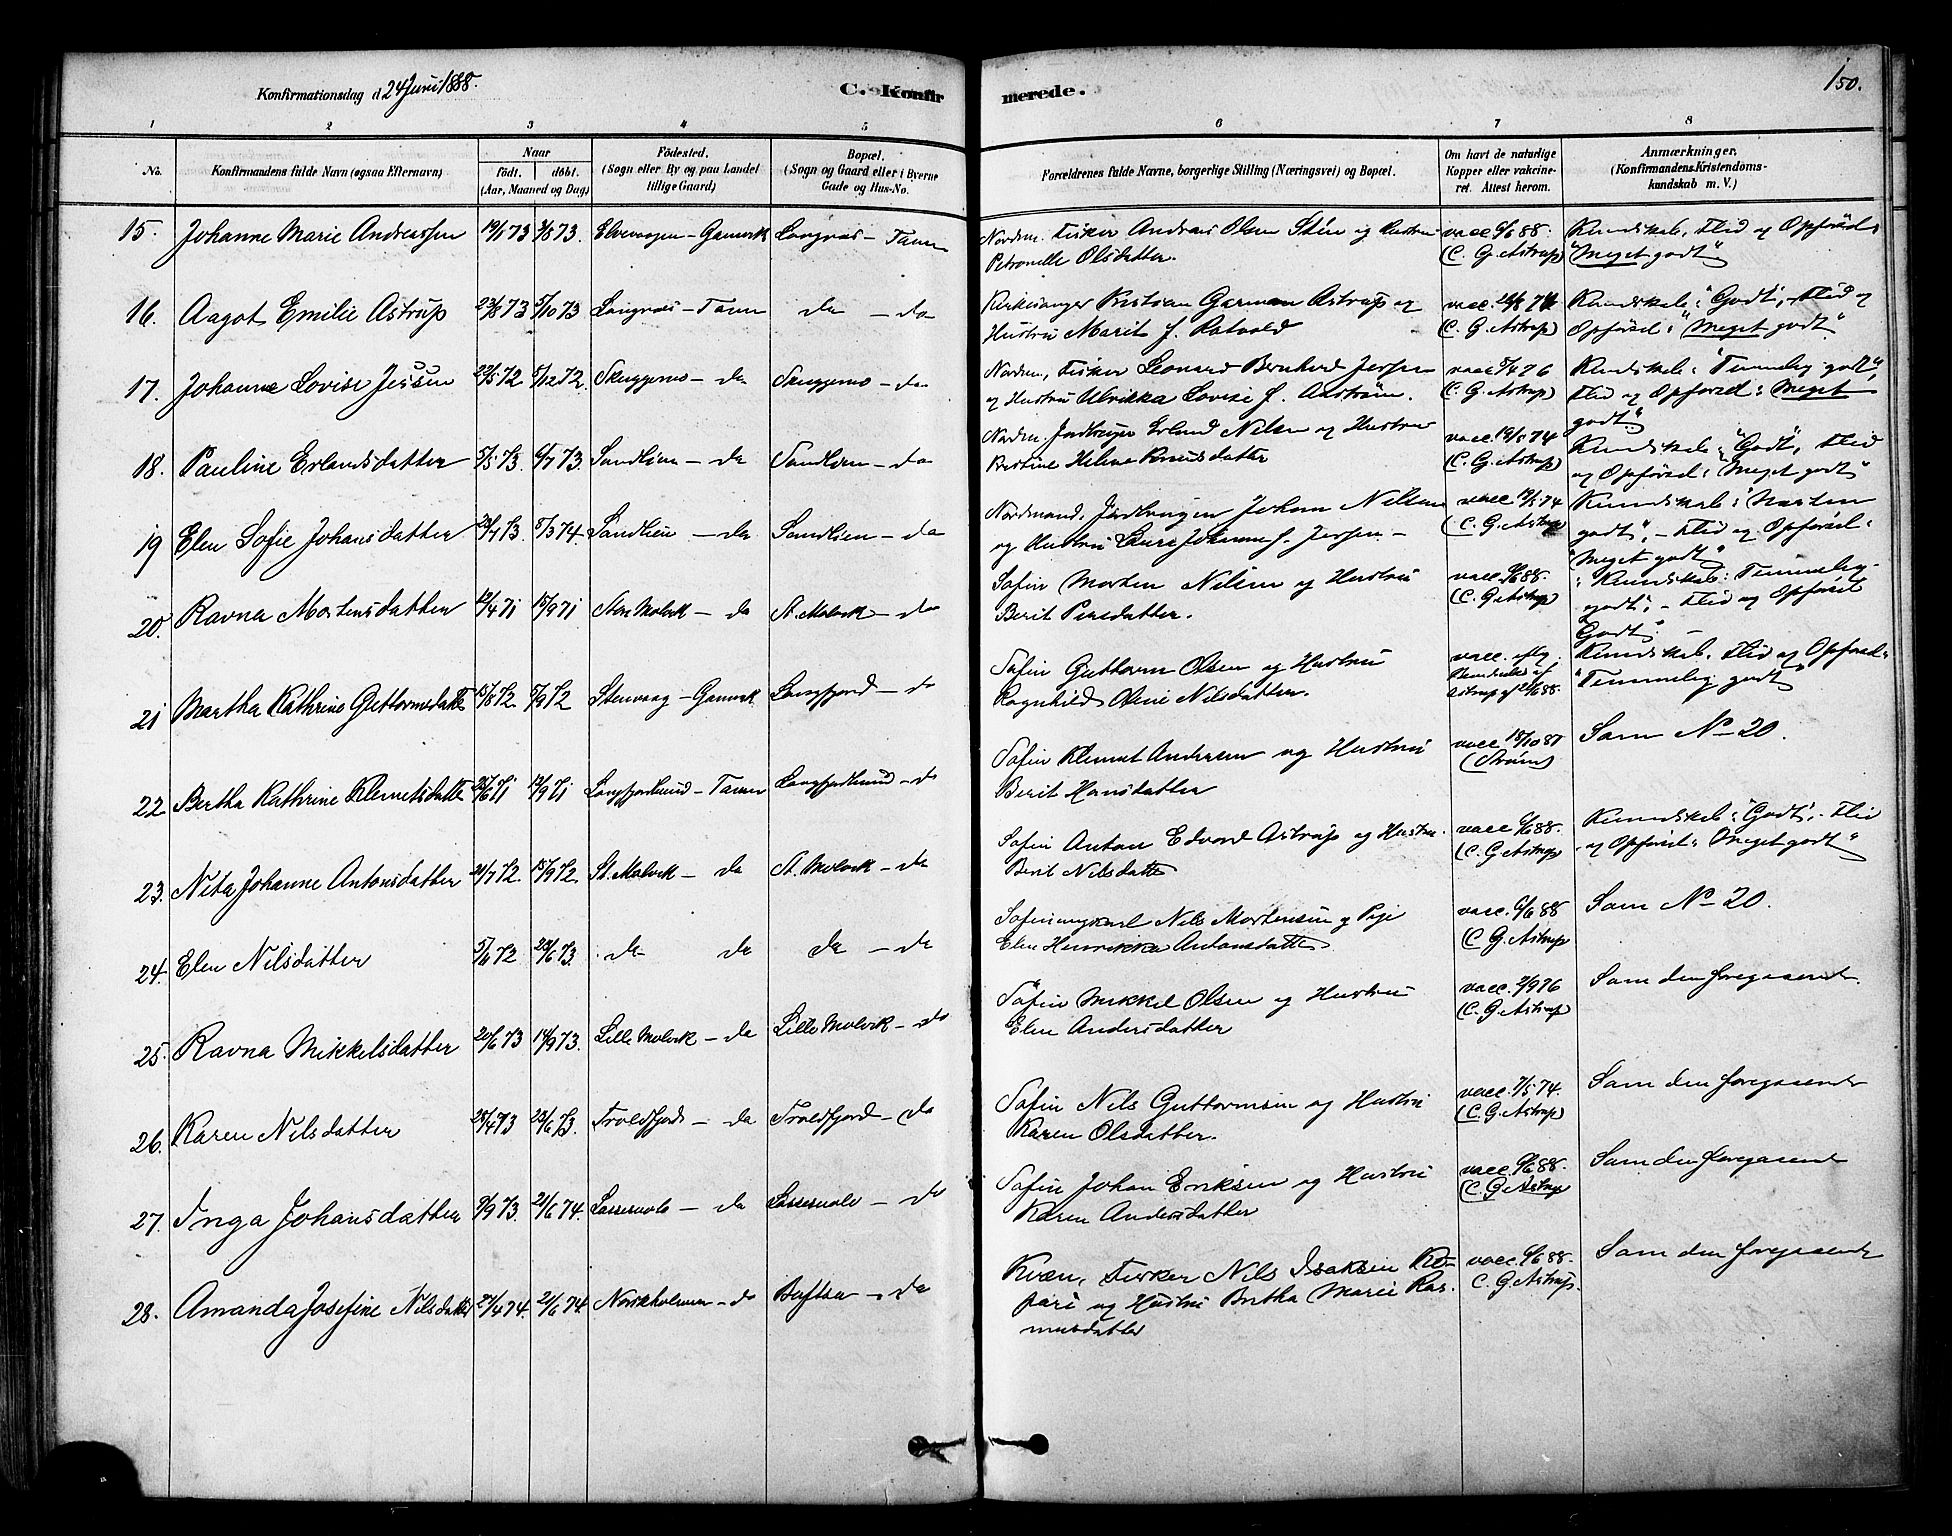 Konfirmationsdag d 24 Juni 1888.
C. Konfirmerede.
150.
1 2 3 4 5 6 7 8
No. Konfirmandens fulde Navn (ogsaa Efternavn)
Naar
födt. döbt.
(Aar, Maaned og Dag)
Födested.
(Sogn eller By og paa Landet
tillige Gaard)
Bopæl.
(Sogn og Gaard eller i Byerne
Gade og Hus-No.
Forældrenes fulde Navne, borgerlige Stilling (Næringsvei) og Bopæl.
Om havt de naturlige
Kopper eller vakcine-
ret. Attest herom.
Anmærkninger.
(Konfirmandens Kristendoms-
kundskab m. V.)
15. Johanne Marie Andreassen 19/1 73 3/8 73. Elvevaagen - Gamvik Langnæs - Tanen
Nordm. Fisker Andreas Olsen Stin og Hustru
Petronelle Olsdatter.
vacc 6/6 88.
(C. G. Astrup)
Kundskab, Flid og Opförsel:
"Meget godt"
16. Aagot Emilie Astrup 23/8 73 5/10 73 Langnæs - Tanen da - da
Kirkesanger Kristian Garman Astrup og
Hustru Marit f. Ratvold
(C. G. Astrup)
Kundskab: "Godt", Flid og
Opförsel: "Meget godt"
17. Johanne Lovise Jessen 22/5 72 5/12 72. Skuggernes - da Skuggernes - da
Nordm., Fisker Leonard Bernhard Jessen
og Hustru Ulrikka Lovise f. Aaström.
vacc 5/6 76
(C. G. Astrup)
Kundskab: "Temmelig godt",
Flid og Opförsel: "Meget
godt"
18. Pauline Erlandsdatter 5/5 73. 6/7 73. Sandlien - da Sandlien - da
Nordm. Jordbruger Erland Nilsen og Hustru
Berthine Helene Knudsdatter
vacc. 19/5 74
(C. G. Astrup)
Kundskab: "Godt", Flid
og Opförsel: "Meget godt"
19 Elen Sofie Johansdatter 28/7 73. 5/3 74. Sandlien - da Sandlien - da
Nordmand. Jordbruger Johan Nilsen
og Hustru Laura Johanne f. Jessen -
vacc 19/5 74
(C. G. Astrup
Kundskab: "Næsten
godt", - Flid og Opförsel:
"Meget godt"
20. Ravna Mortensdatter 12/4 71 15/9 71 Store Molvik - da St. Molvik - da
Søfin Morten Nilsen og Hustru
Berit Persdatter.
vacc. 6/6 88.
(C. G. Astrup)
Kundskab: "Temmelig
godt", - Flid og Opförsel
"Godt".
21 Martha Kathrine Guttormsdatter 15/8 72. 5/9 72 Stenvaag - Gamvik Langfjord - da
Søfin Guttorm Olsen og Hustru
Ragnhild Oline Nilsdatter.
Kundskab. Flid og Opförsel:
"Temmelig godt"
22. Bertha Kathrine Klemetsdatter 26/6 71 12/9 71 Langfjordbund - Tanen Langfjordbund - da
Søfin Klemet Andersen og Hustru
Berit Hansdatter
vacc 18/10 87
(Strøm)
Som No 20.
23. Nita Johanne Antonsdatter 21/7 72. 15/9 72. St. Molvik - da St. Molvik - da
Søfin Anton Edvard Astrup og Hustru
Berit Nilsdatter
vacc 6/6 88.
(C. G. Astrup
Kundskab: "Godt", - Flid
og Opförsel: "Meget godt"
24. Elen Nilsdatter 5/6 72 29/6 73. da da da - da
Søfinungkarl Nils Mortensen og Pige
Elen Henrikka Antonsdatter
vacc. 6/6 88
(C. G. Astrup
Som No 20.
25. Ravna Mikkelsdatter 20/6 73 14/9 73. Lille Molvik - da Lille Molvik - da
Søfin Mikkel Olsen og Hustru
Elen Andersdatter
vacc. 2/9 76
(C. G. Astrup)
Som den foregaaende.
26. Karen Nilsdatter 25/4 73 29/6 73. Troldfjord - da Troldfjord - da
Søfin Nils Guttormsen og Hustru
Karen Olsdatter.
vacc. 7/5 74.
(C. G. Astrup)
Som den foregaaende
27. Inga Johansdatter 9/9 73. 21/6 74. - da - da
Søfin Johan Eriksen og Hustru
Karen Andersdatter
vacc. 6/6 88.
(C. G. Astrup
Som den foregaaende
28. Amanda Josefine Nilsdatter 27/4 74. 21/6 74 Norskholmen - da Buften - da
Kvæn, Fisker Nils Isaksen
og Hustru Bertha Marie Ras-
musdatter
vacc. 6/6 88.
C. G. Astrup.
Som den foregaaende